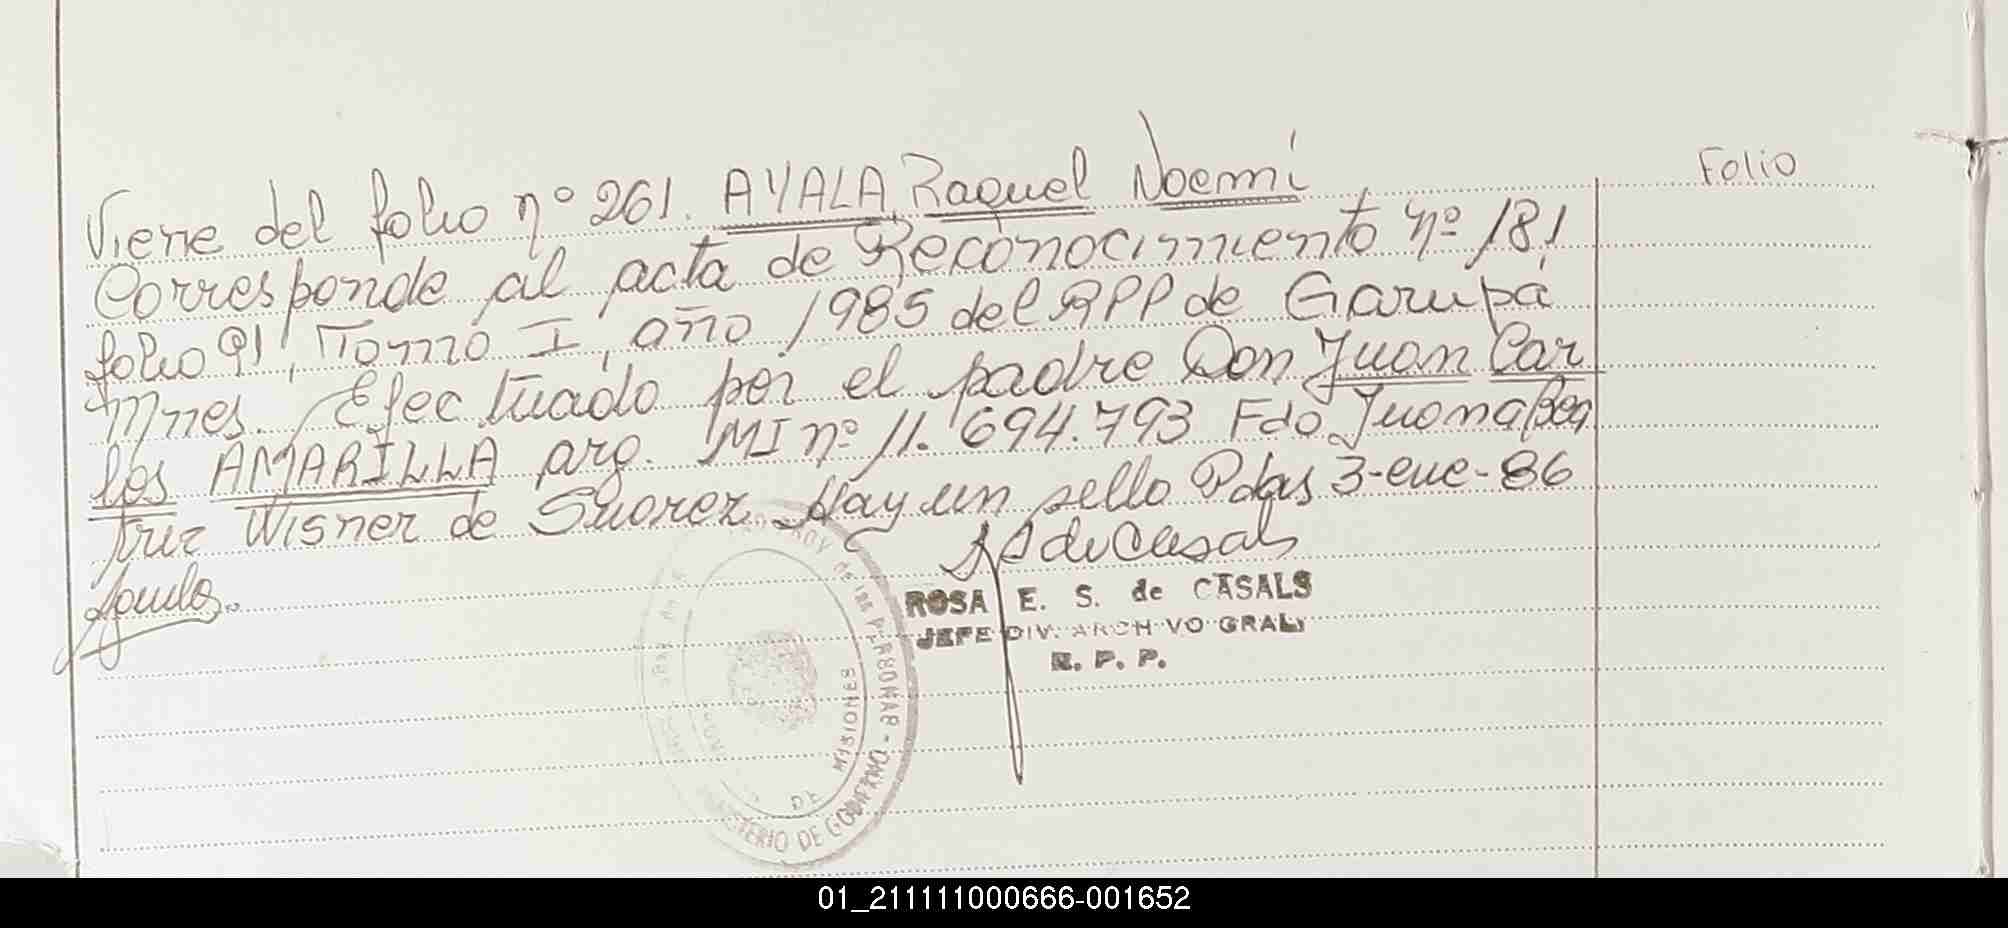 Folio
Viene del folio nº 261. AYALA, Raquel Noemi
Corresponde al acta de Reconocimiento nº 181
folio 91, Tomo I, año 1985 del RPP de Garupá
Mnes. Efectuado por el padre Don Juan Car
los AMARILLA arg. MI nº 11.694.793 Fdo Juana Bea
triz Wisner de Suarez Hay un sello Pdas 3-ene-86
ROSA E. S. de CASALS
JEFE DIV. ARCHIVO GRAL.
R. P. P.
de las PERSONAS - 
MISIONES
MINISTERIO DE GOBIERNO
01_211111000666-001652